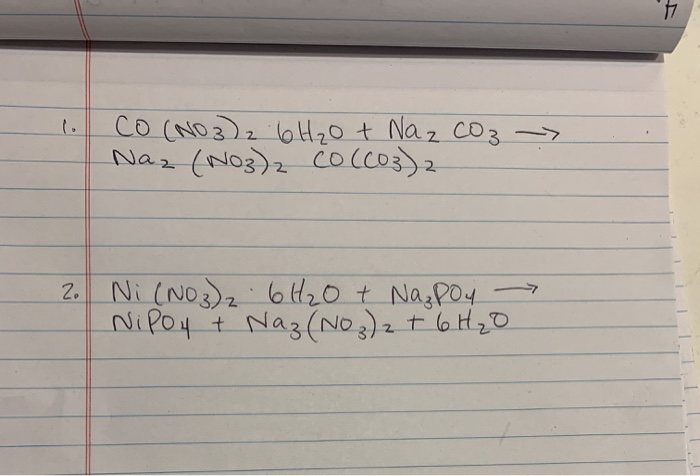 1. CO (NO3)2 6H2O + Na2 CO3 →
Na2 (NO3)2 CO(CO3)2
2. Ni (NO3)2 · 6H2O + Na3PO4 →
NiPO4 + Na3(NO3)2 + 6H2O